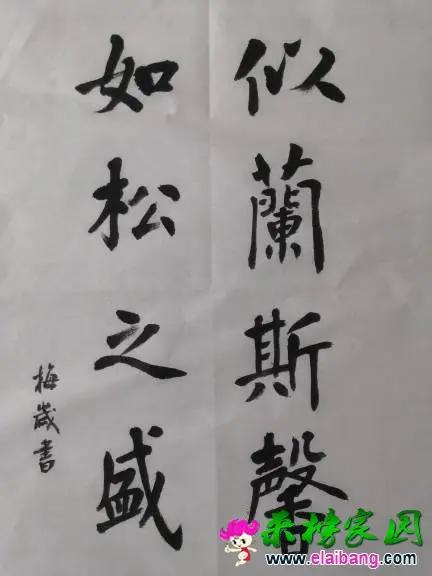 似蘭斯馨
如松之盛
梅箴書
来榜家园
www.elaibang.com